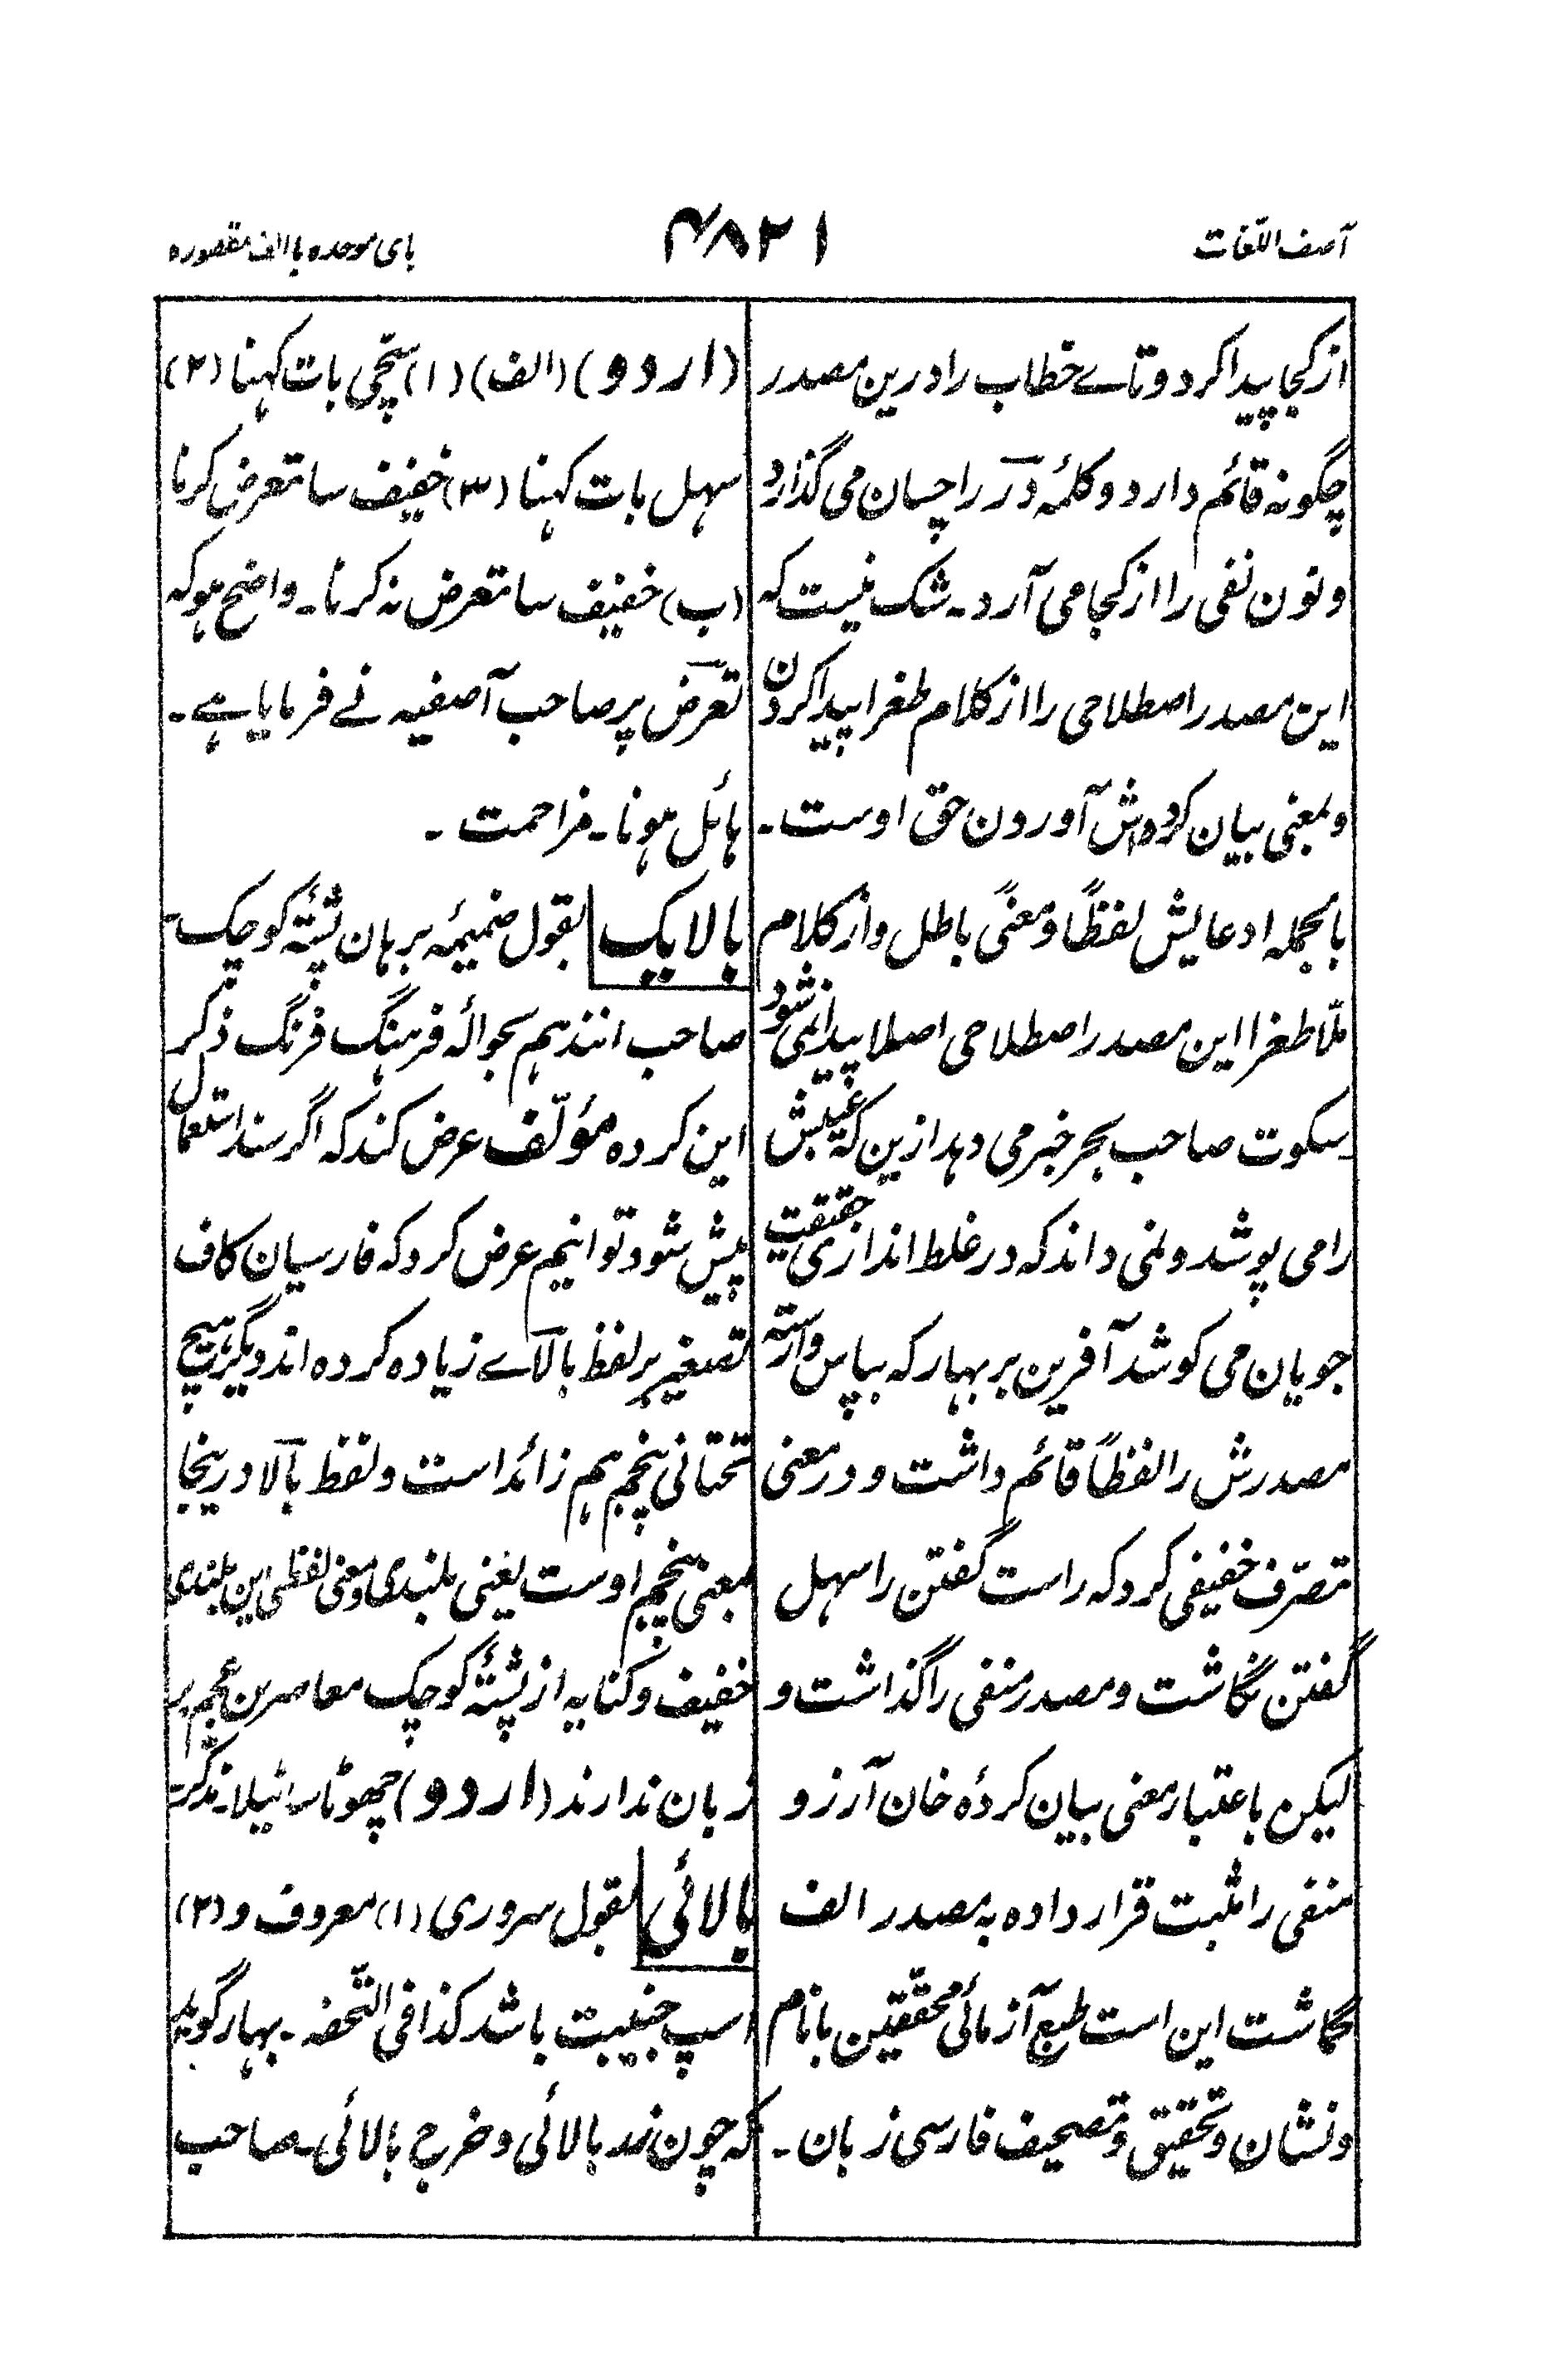 آصف اللّغات
۴۸۲۱
بای موحده باالف مقصوره
از کجا پیدا کرد و تاے خطاب را درین مصدر
چگونه قائم دارد و کلمۂ در را چسان می گذارد
و نون نفی را از کجا می آرد۔ شک نیست که
این مصدر اصطلاحی را از کلام طغرا پیدا کردن
و بمعنی بیان کرده اش آوردن حق اوست۔
بالجمله ادعایش لفظاً و معنیً باطل و از کلام
ملّا طغرا این مصدر اصطلاحی اصلا پیدا نمی شود
سکوت صاحب بحر خبر می دهد ازین که عیبش
را می پوشد و نمی داند که در غلط اندازی حقیقت
جویان می کوشد آفرین بر بهار که بپاس وارسته
مصدرش را لفظاً قائم داشت و در معنی
تصرّف خفیفی کرد که راست گفتن را سهل
گفتن نگاشت و مصدر منفی را گذاشت و
لیکن باعتبار معنی بیان کردۂ خان آرزو
منفی را مثبت قرار داده به مصدر الف
نگاشت این است طبع آزمائی محققین بانام
و نشان و تحقیق و تصحیف فارسی زبان۔
(اردو) (الف) (۱) سچّی بات کہنا (۲)
سہل بات کہنا (۳) خفیف سا تعرض کرنا
(ب) خفیف سا تعرض نہ کرنا۔ واضح ہو کہ
تعرض پر صاحب آصفیہ نے فرمایا ہے۔
ہائل ہونا۔ مزاحمت۔
بالایک بقول ضمیمۂ برہان پشتۂ کوچک
صاحب انند ہم بحوالۂ فرہنگ فرنگ ذکر
این کرده مؤلّف عرض کند که اگر سند استعمال
پیش شود توانیم عرض کرد که فارسیان کاف
تصغیر بر لفظ بالاے زیاده کرده اند و دیگر ہیچ
تحتانی پنجم ہم زائد است و لفظ بالا درینجا
بمعنی پنجم اوست یعنی بلندی و معنی لفظی این بلندی
خفیف و کنایه از پشتۂ کوچک معاصرین عجم بر
زبان ندارند (اردو) چھوٹا سا ٹیلا۔ مذکر
بالائی بقول سروری (۱) معروف و (۲)
اسپ جنیبت باشد کذا فی التّحفه۔ بہار گوید
که چون زد بالائی و خرج بالائی۔ صاحب